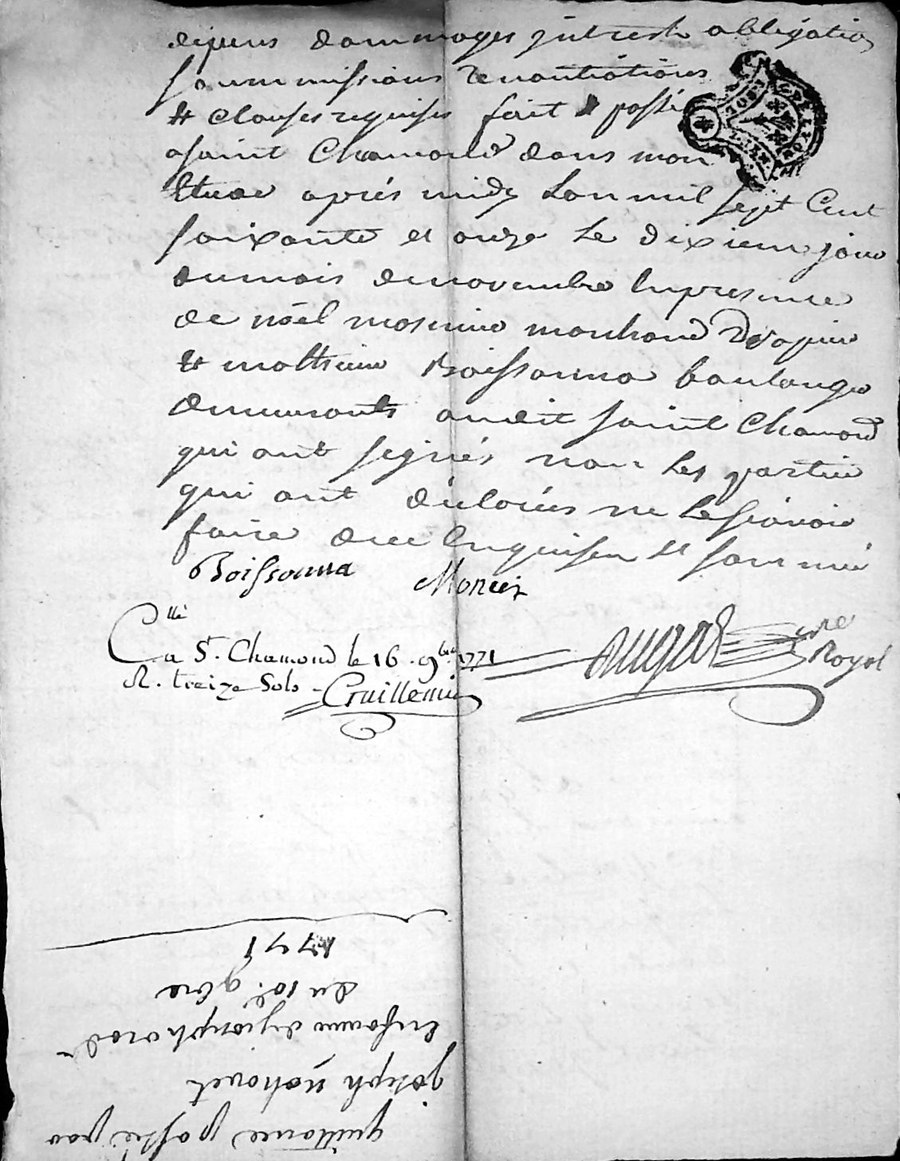 depens dommages intrests obligation
soummissions renontiations
& clauses requises fait & passé
a saint Chamond dans mon
Etude après midy Lan mil sept Cent
soixante et onze Le dixieme jour
du mois de novembre En presence
de nöel mosnier marchand Drapier
& mathieu Boissonna boulanger
demeurants audit saint Chamond
qui ont segnés non Les partie
qui ont déclarés ne Le sçavoir
faire de ce Enquisen et sommé
Boissonna Monier
Clle
a St. Chamond le 16 9bre 1771
R. treize Sols Guillemin
Royal
quittance passé par
joseph
En faveur de joseph
du 10e 9bre
1771